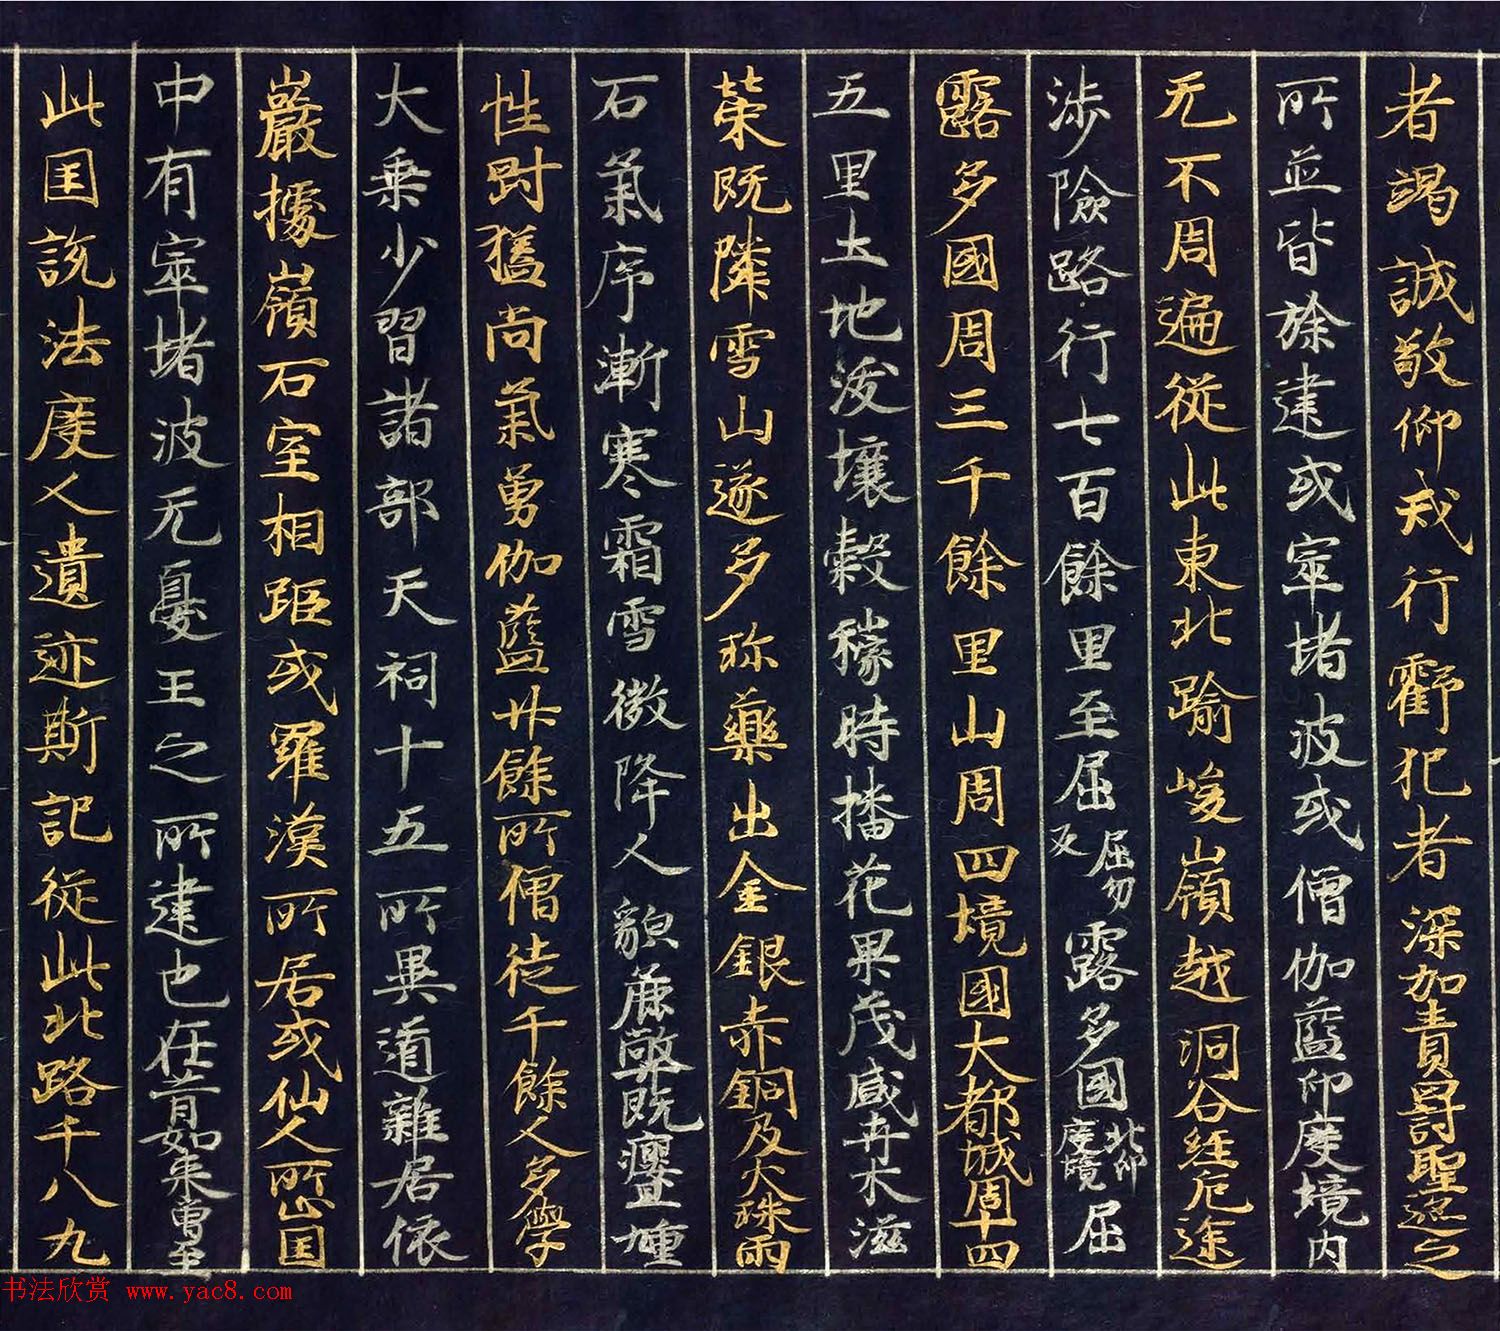 者竭誠敬仰戒行虧犯者深加責罰聖迹之
所並皆旌建或窣堵波或僧伽藍印度境內
无不周遍從此東北踰峻嶺越洞谷經危途
涉險路行七百餘里至屈屈勿反露多國北印度境屈
露多國周三千餘里山周四境國大都城周十四
五里土地沃壤穀稼時播花果茂盛卉木滋
榮既隣雪山遂多珎藥出金銀赤銅及火珠雨
石氣序漸寒霜雪微降人貌麁弊既癭且尰
性剛猛尚氣勇伽藍廿餘所僧徒千餘人多學
大乘少習諸部天祠十五所異道雜居依
巖據嶺石室相距或羅漢所居或仙人所止国
中有窣堵波无憂王之所建也在昔如来曽至
此国說法度人遺迹斯記從此北路千八九
书法欣赏 www.yac8.com